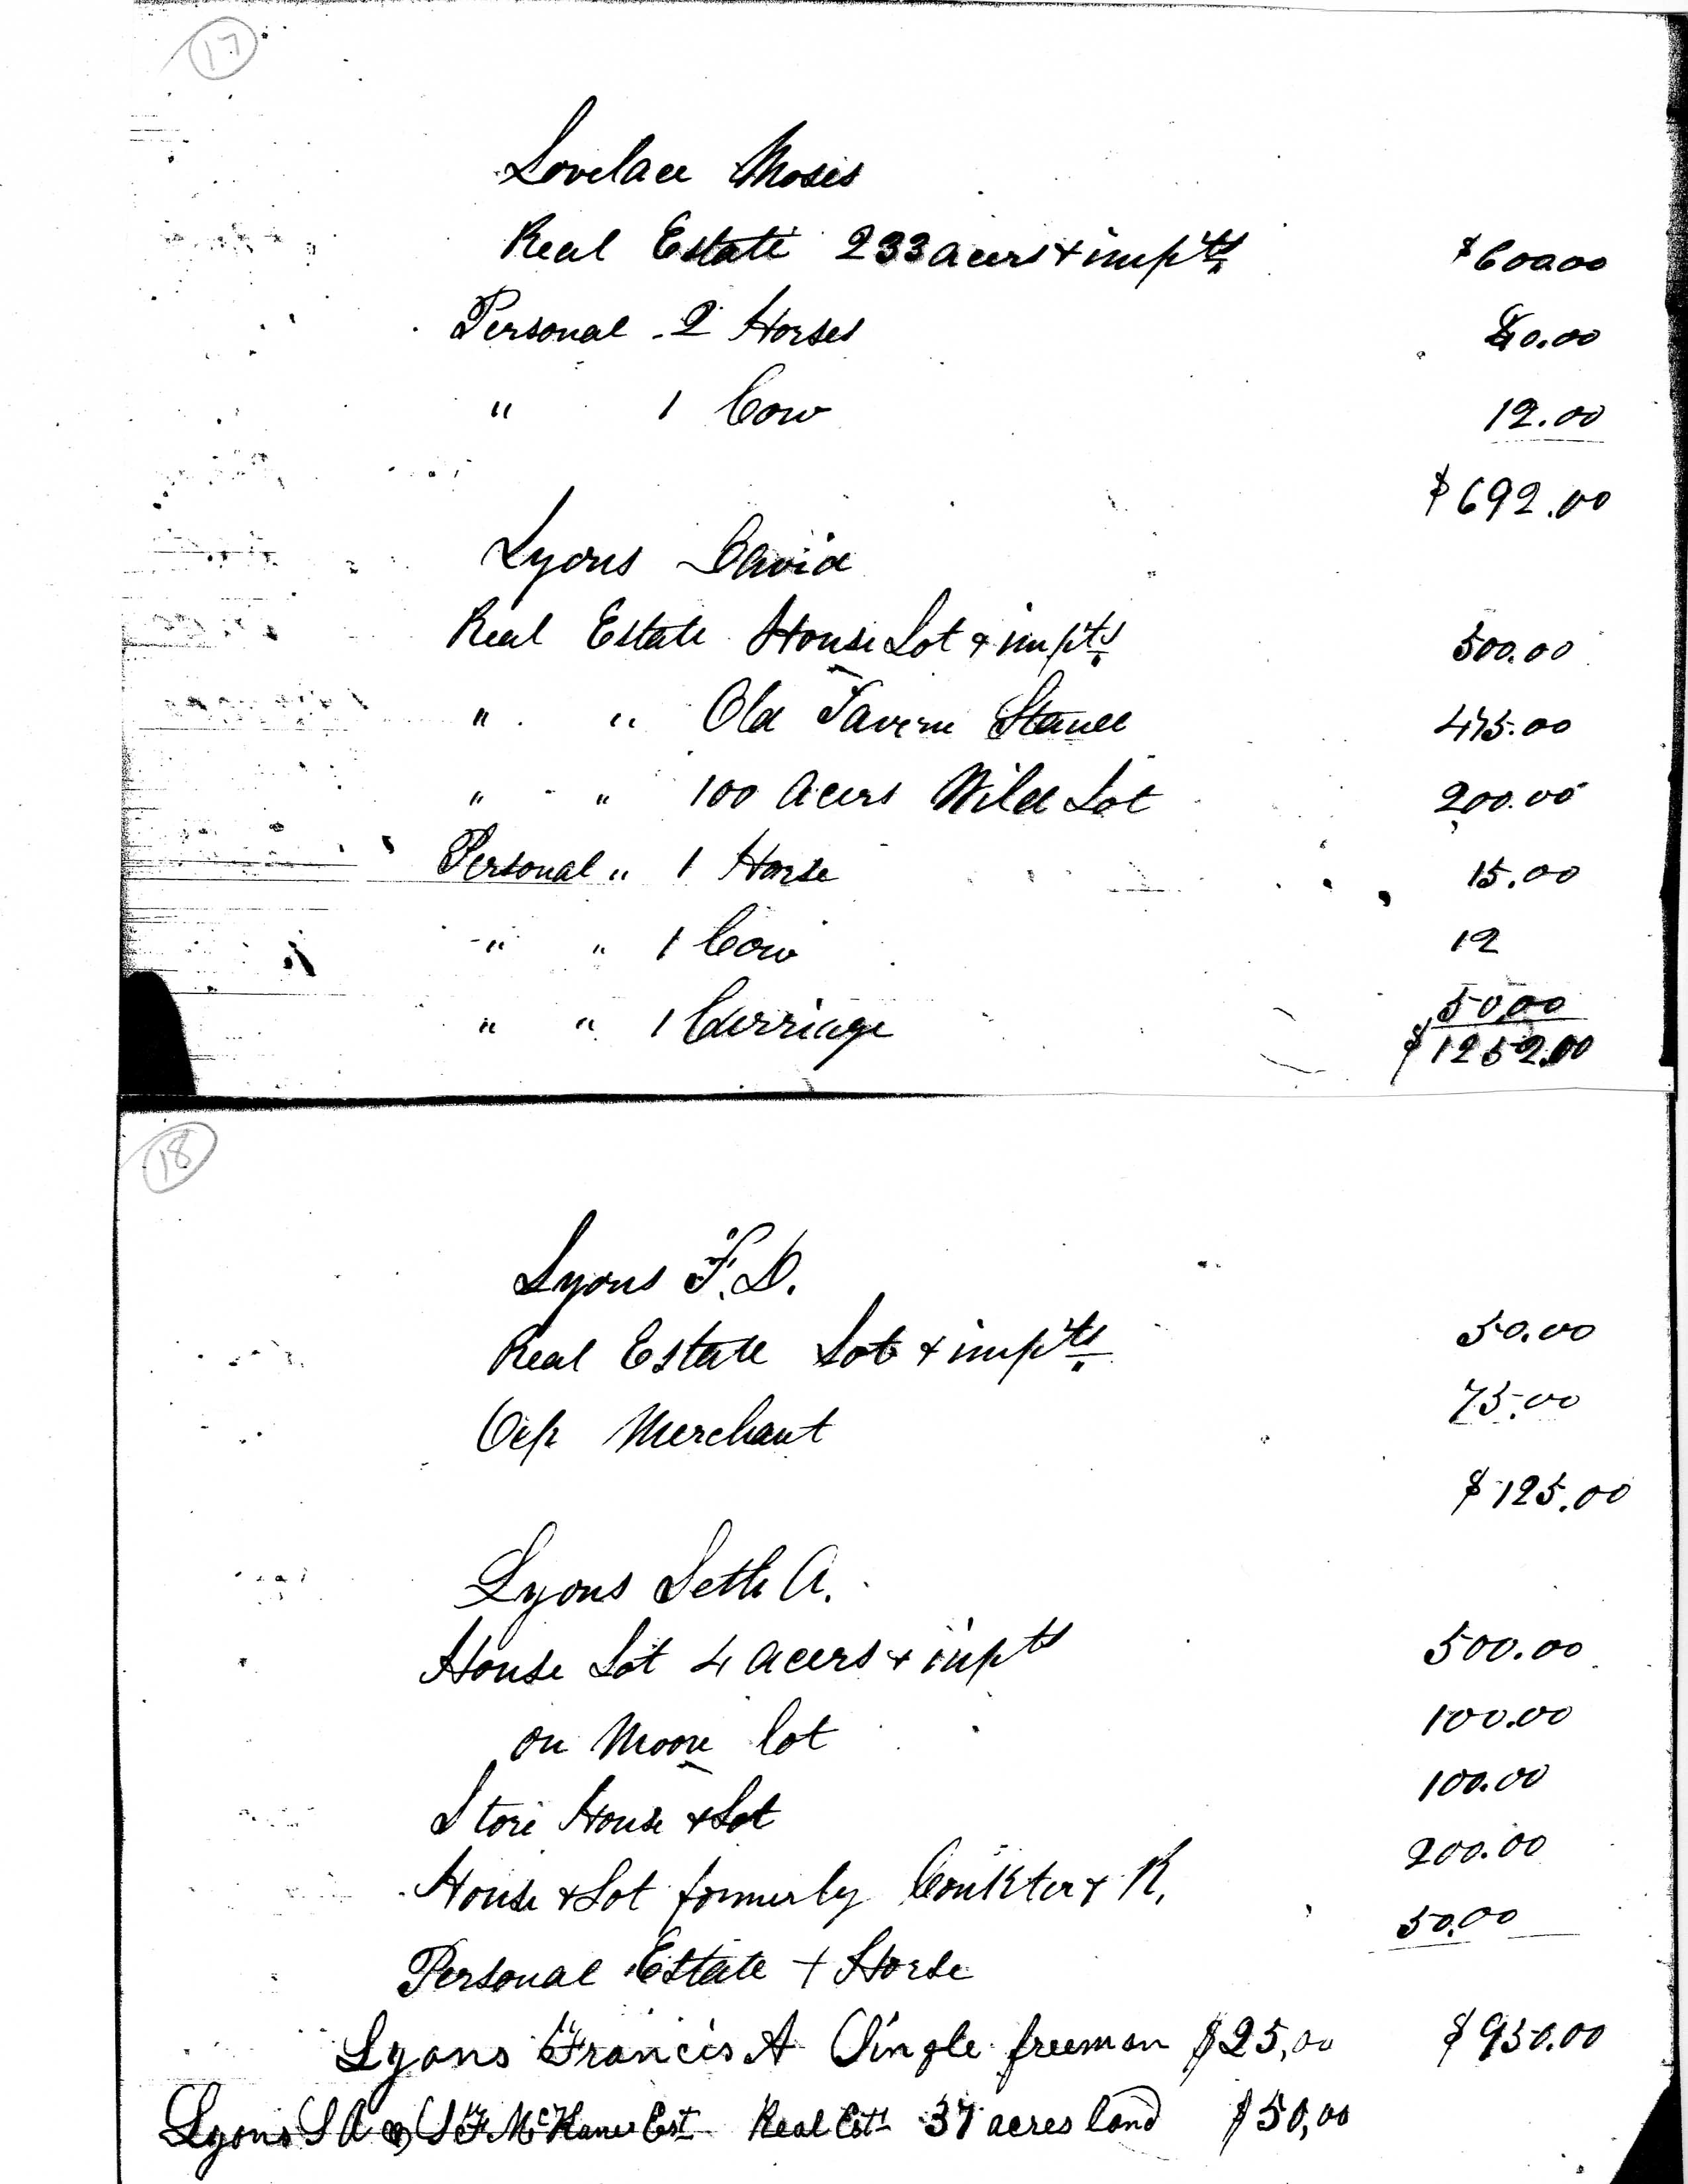 17
Lovelace Moses
Real Estate 233 acers + imp'ts $600.00
Personal 2 Horses 80.00
" 1 Cow 12.00
$692.00
Lyons David
Real Estate House Lot + imp'ts 500.00
" " Old Tavern Stand 475.00
" " 100 acers Wild Lot 200.00
Personal " 1 Horse 15.00
" " 1 Cow 12
" " 1 Carriage 50.00
$1252.00
18
Lyons F. D.
Real Estate Lot + imp'ts 50.00
Occp Merchant 75.00
$125.00
Lyons Seth A.
House Lot 4 acers + impts 500.00
on Moore lot 100.00
Store House + Lot 100.00
House + Lot formerly + R. 200.00
Personal Estate + Horse 50.00
Lyons Francis A Single freeman $25,00 $950.00
Lyons S A Est Real Est 37 acres land $50,00